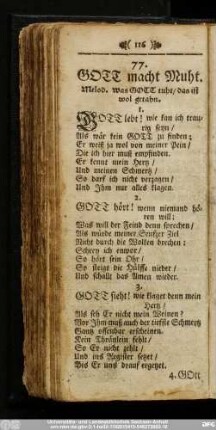 116
77.
GOTT macht Muht.
Melod. Was GOTT tuht/ das ist
wol getahn.
1.
GOTT lebt! wie kan ich trau-
rig seyn/
Als wär kein GOTT zu finden;
Er weiß ja wol von meiner Pein/
Die ich hier muß empfinden.
Er kennt mein Hertz/
Und meinen Schmertz/
So darf ich nicht verzagen/
Und Jhm nur alles klagen.
2.
GOTT hört! wenn niemand hö-
ren will;
Was will der Feind denn sprechen/
Als würde meiner Seufzer Ziel
Nicht durch die Wolken brechen:
Schrey ich empor/
So hört sein Ohr/
So steigt die Hülffe nieder/
Und schallt das Amen wieder.
3.
GOTT sieht! wie klaget denn mein
Hertz/
Als seh Er nicht mein Weinen?
Vor Jhm muß auch der tiefste Schmertz
Gantz offenbar erscheinen.
Kein Thränlein fehlt/
So Er nicht zehlt/
Und ins Register setzet/
Bis Er uns drauf ergetzet.
4. GOtt